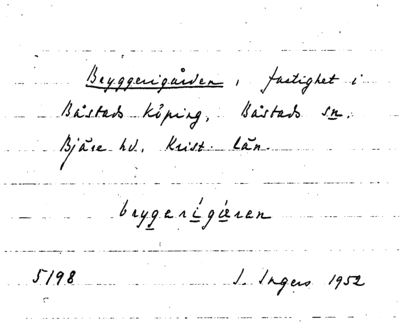 Bryggerigården, fastighet i
Båstads köping, Båstads sn.
Bjäre hd. Krist. län.
brygerigæren
5198 I. Ingers 1952